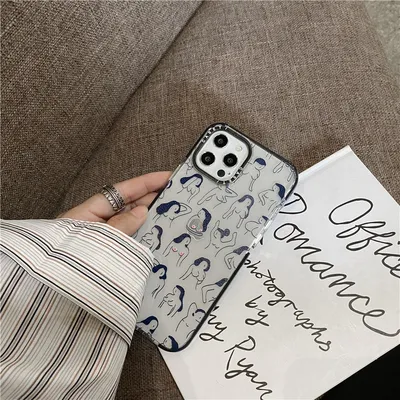 Office
Romance
photographs
by
Ryan